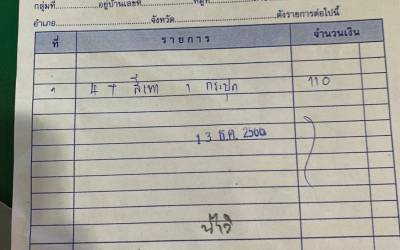 กลุ่มที่..............อยู่บ้านเลขที่..............หมู่ที่..............
อำเภอ..............จังหวัด..............ดังรายการต่อไปนี้
ที่ รายการ จำนวนเงิน
1 4T สีเทา 1 กระปุก 110
13 ธ.ค. 2560